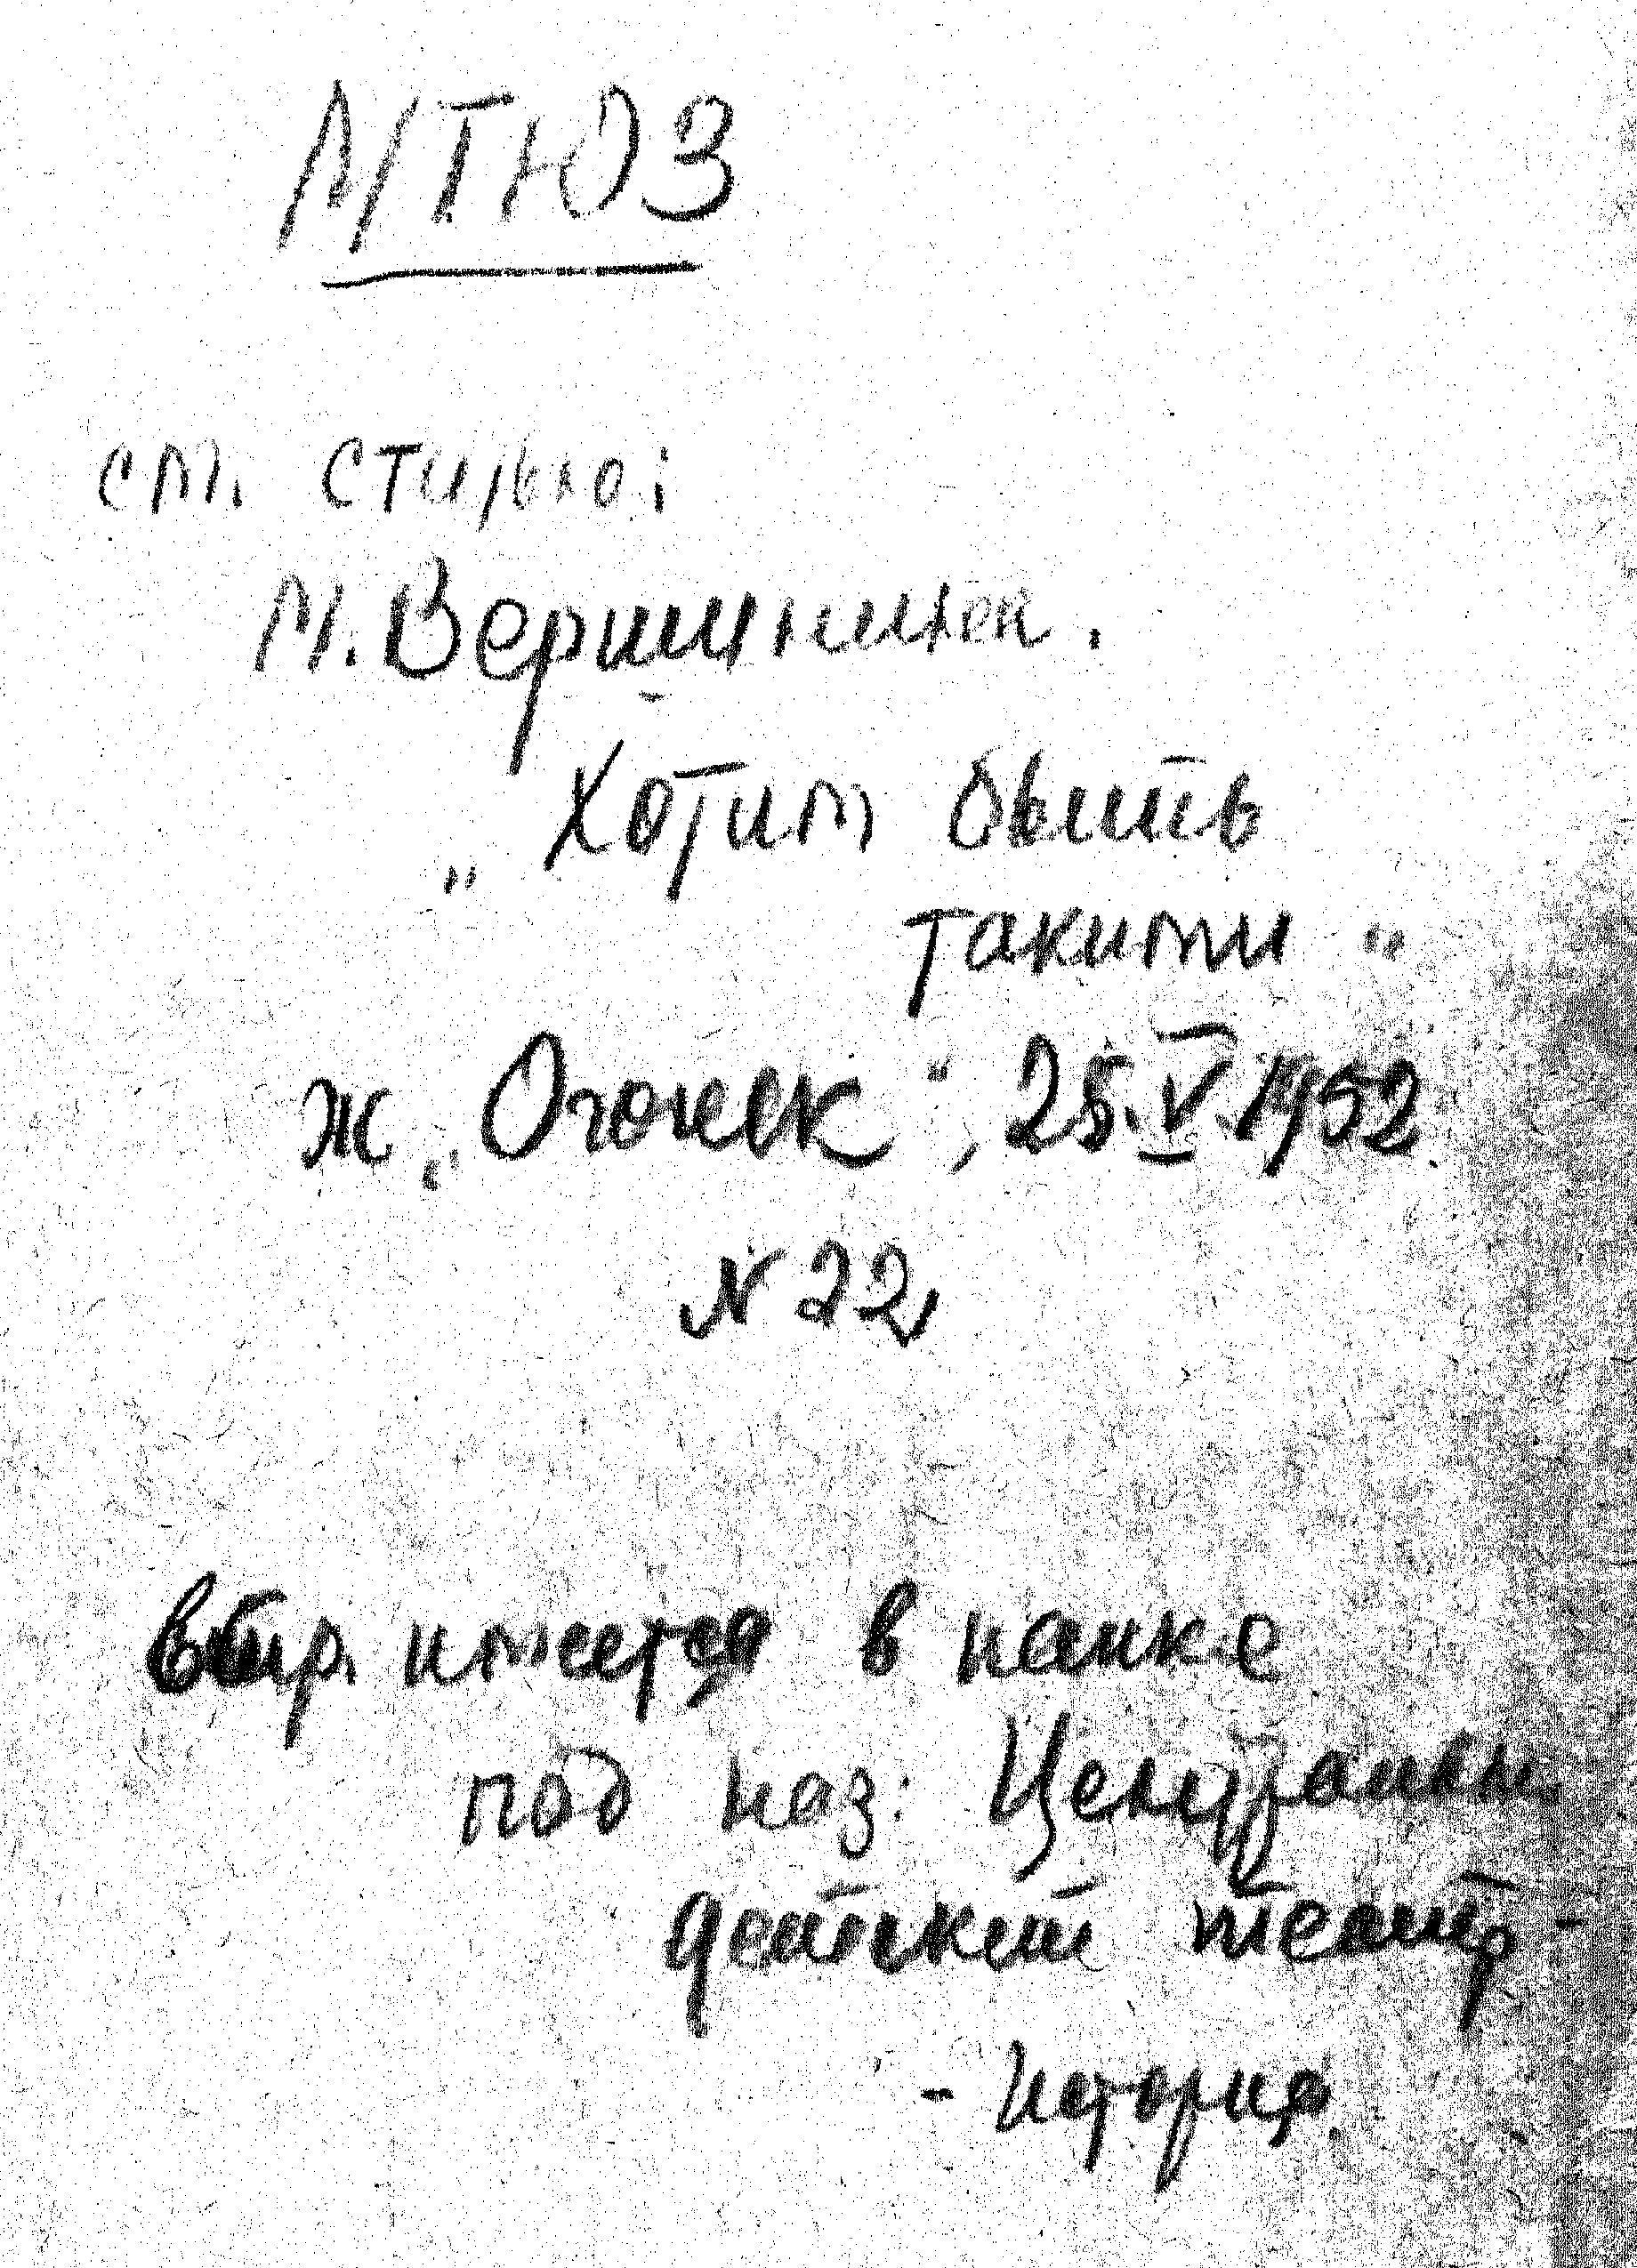 МТЮЗ
см. статью:
М. Вершинина.
„Хотим быть
такими"
ж. „Огонек", 25.V.1952
N 22,
имеется в папке
под наз: Центральн.
детский театр -
- история.